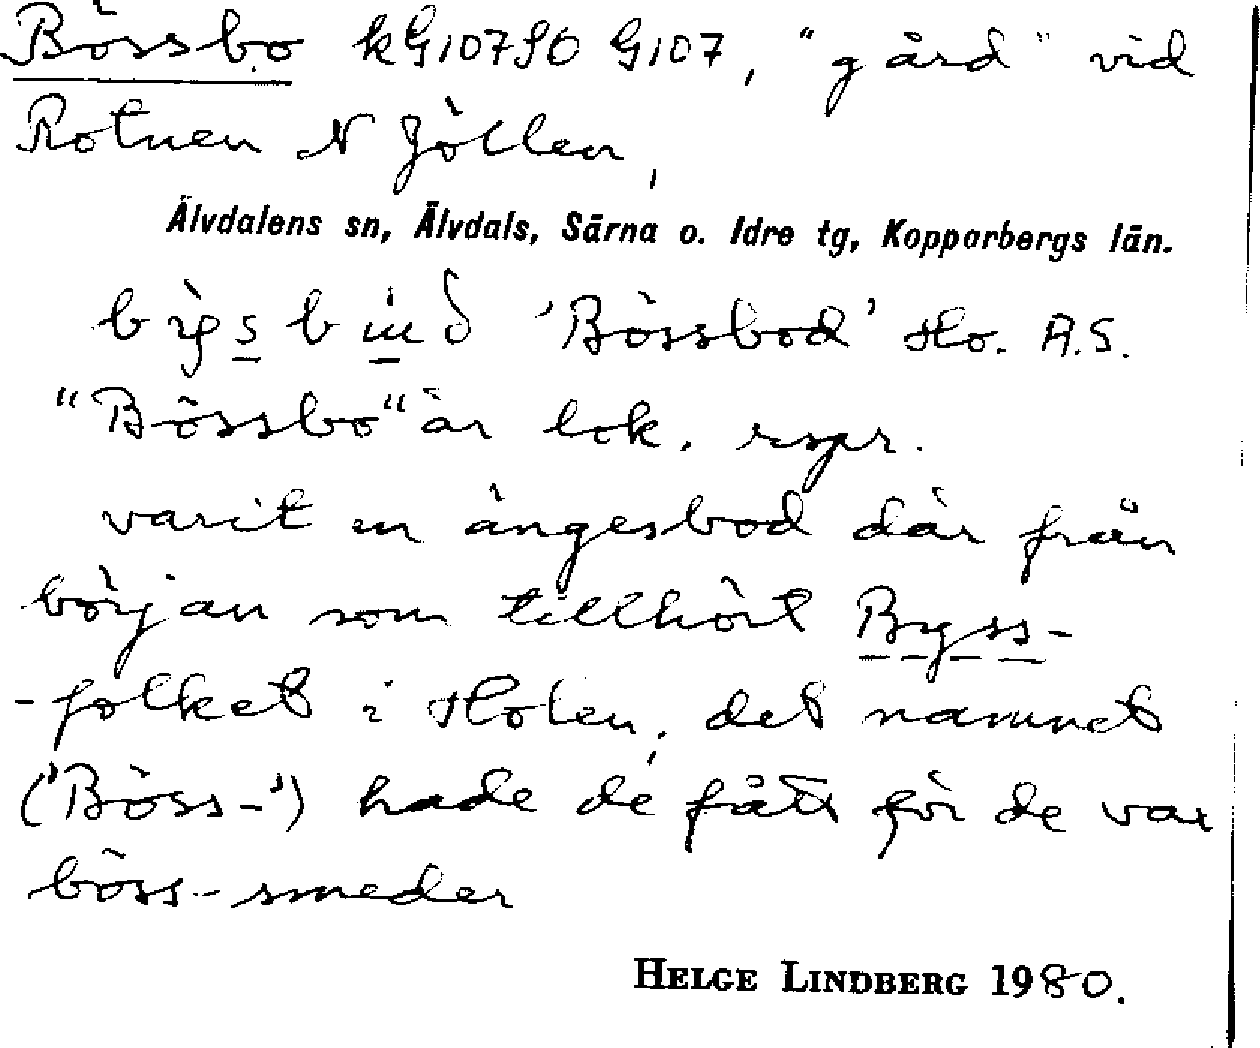 Bössbo kG10790 G107, "gård" vid
Rotnen N Jöllen,
Älvdalens sn, Älvdals, Särna o. Idre tg, Kopparbergs län.
'Bössbod' Ho. A.S.
"Bössbo" är lok. rspr.
varit en ängesbod där från
början som tillhört Byss-
-folket i Holen, det namnet
('Böss-') hade de fått för de var
böss-smeder
HELGE LINDBERG 1980.